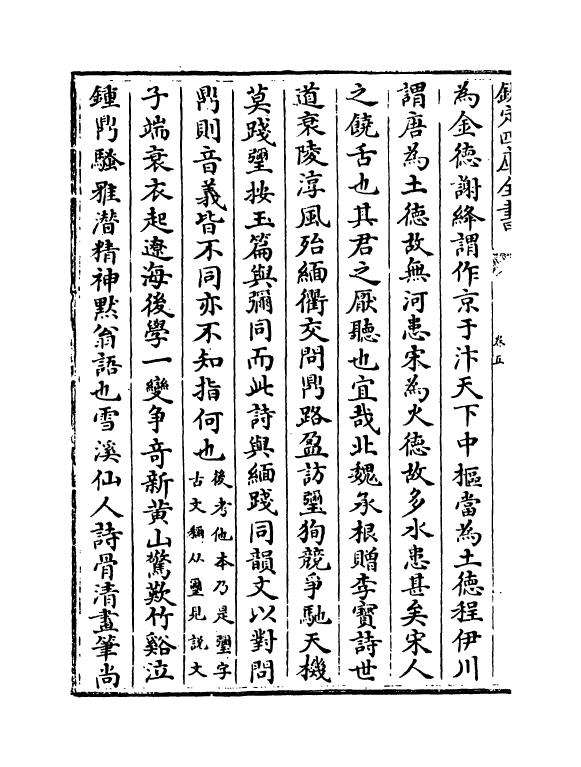 欽定四庫全書
卷五
為金德謝絳謂作京于汴天下中樞當為土德程伊川
謂唐為土德故無河患宋為火德故多水患甚矣宋人
之饒舌也其君之厭聽也宜哉北魏承根贈李寳詩世
道衰陵淳風殆緬衢交問鼎路盈訪璽狥競爭馳天機
莫踐璽按玉篇與彌同而此詩與緬踐同韻文以對問
鼎則音義皆不同亦不知指何也
後考他本乃是璽字
古文稱从壐見説文
子端衰衣起遼海後學一變爭竒新黄山驚歎竹谿泣
鍾鼎騷雅潛精神黙翁語也雪溪仙人詩骨清畫筆尚